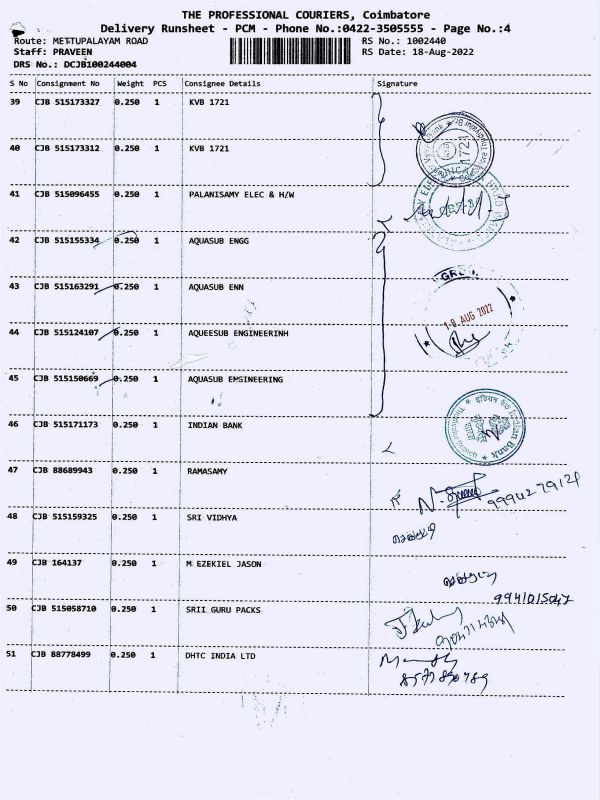 THE PROFESSIONAL COURIERS, Coimbatore
Delivery Runsheet - PCM - Phone No.:0422-3505555 - Page No.:4
Route: METTUPALAYAM ROAD RS No.: 1002440
Staff: PRAVEEN RS Date: 18-Aug-2022
DRS No.: DCJB100244004
S No Consignment No Weight PCS Consignee Details Signature
39 CJB 515173327 0.250 1 KVB 1721
40 CJB 515173312 0.250 1 KVB 1721
1721
41 CJB 515096455 0.250 1 PALANISAMY ELEC & H/W
42 CJB 515155334 0.250 1 AQUASUB ENGG
43 CJB 515163291 0.250 1 AQUASUB ENN
18 AUG 2022
44 CJB 515124107 0.250 1 AQUEESUB ENGINEERINH
45 CJB 515150669 0.250 1 AQUASUB EMGINEERING
46 CJB 515171173 0.250 1 INDIAN BANK
Indian Bank
47 CJB 88689943 0.250 1 RAMASAMY
48 CJB 515159325 0.250 1 SRI VIDHYA
49 CJB 164137 0.250 1 M EZEKIEL JASON
9941015047
50 CJB 515058710 0.250 1 SRII GURU PACKS
51 CJB 88778499 0.250 1 DHTC INDIA LTD